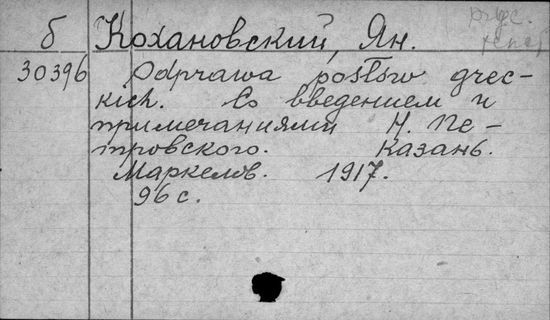 б Кохановский, Ян.
30396 Odprawa posłów grec-
kich. Со введением и
примечаниями Н. Пе-
тровского. Казань.
Маркелов. 1917.
96 с.